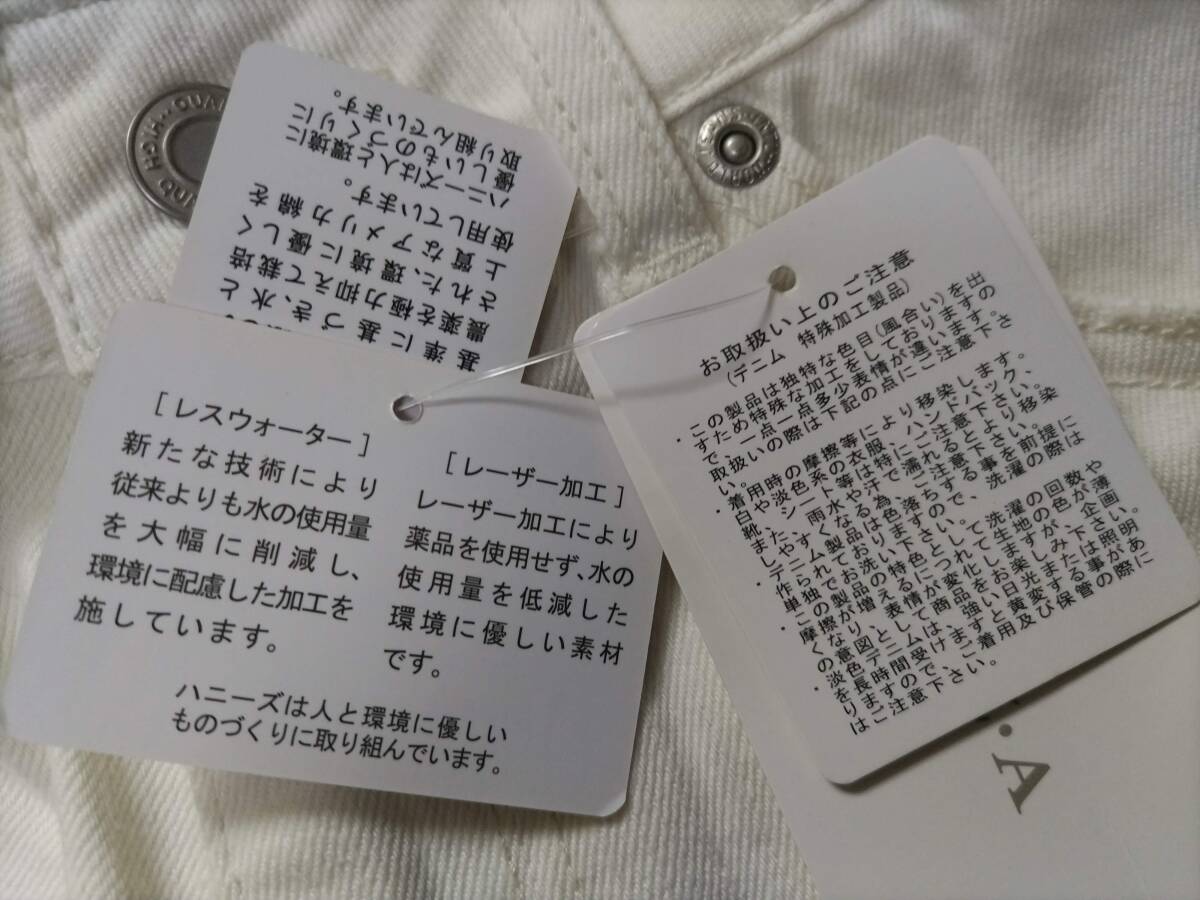 基準に基づき、水と
農薬を極力抑えて栽培
された、環境に優しく
上質なアメリカ綿を
使用しています。
ハニーズは人と環境に
優しいものづくりに
取り組んでいます。
[レスウォーター]
新たな技術により
従来よりも水の使用量
を大幅に削減し、
環境に配慮した加工を
施しています。
[レーザー加工]
レーザー加工により
薬品を使用せず、水の
使用量を低減した
環境に優しい素材
です。
ハニーズは人と環境に優しい
ものづくりに取り組んでいます。
お取扱い上のご注意
(デニム 特殊加工製品)
・この製品は独特な色目(風合い)を出
すため特殊な加工をしておりますの
で、一点一点多少表情が違います。
取扱いの際は下記の点にご注意下さ
い。
・着用時の摩擦等により移染します。
白や淡色系の衣服、ハンドバック、
靴、シート等は特にご注意下さい。
また、雨水や汗に濡れるとより移染
しやすくなる為ご注意下さい。
・デニム製品は色落ちする事を前提に
作られておりますので、洗濯の際は
単独でお洗い下さい。
・この製品の特色として洗濯の回数や
摩擦が増えるにつれて生地の色が薄
くなり、表情が変化しますが、企画
の意図として商品をお楽しみ下さい。
・淡色デニムは、強い日光または照明
を長時間受けますと黄変する事があ
りますので、ご着用及び保管の際に
はご注意下さい。
・A